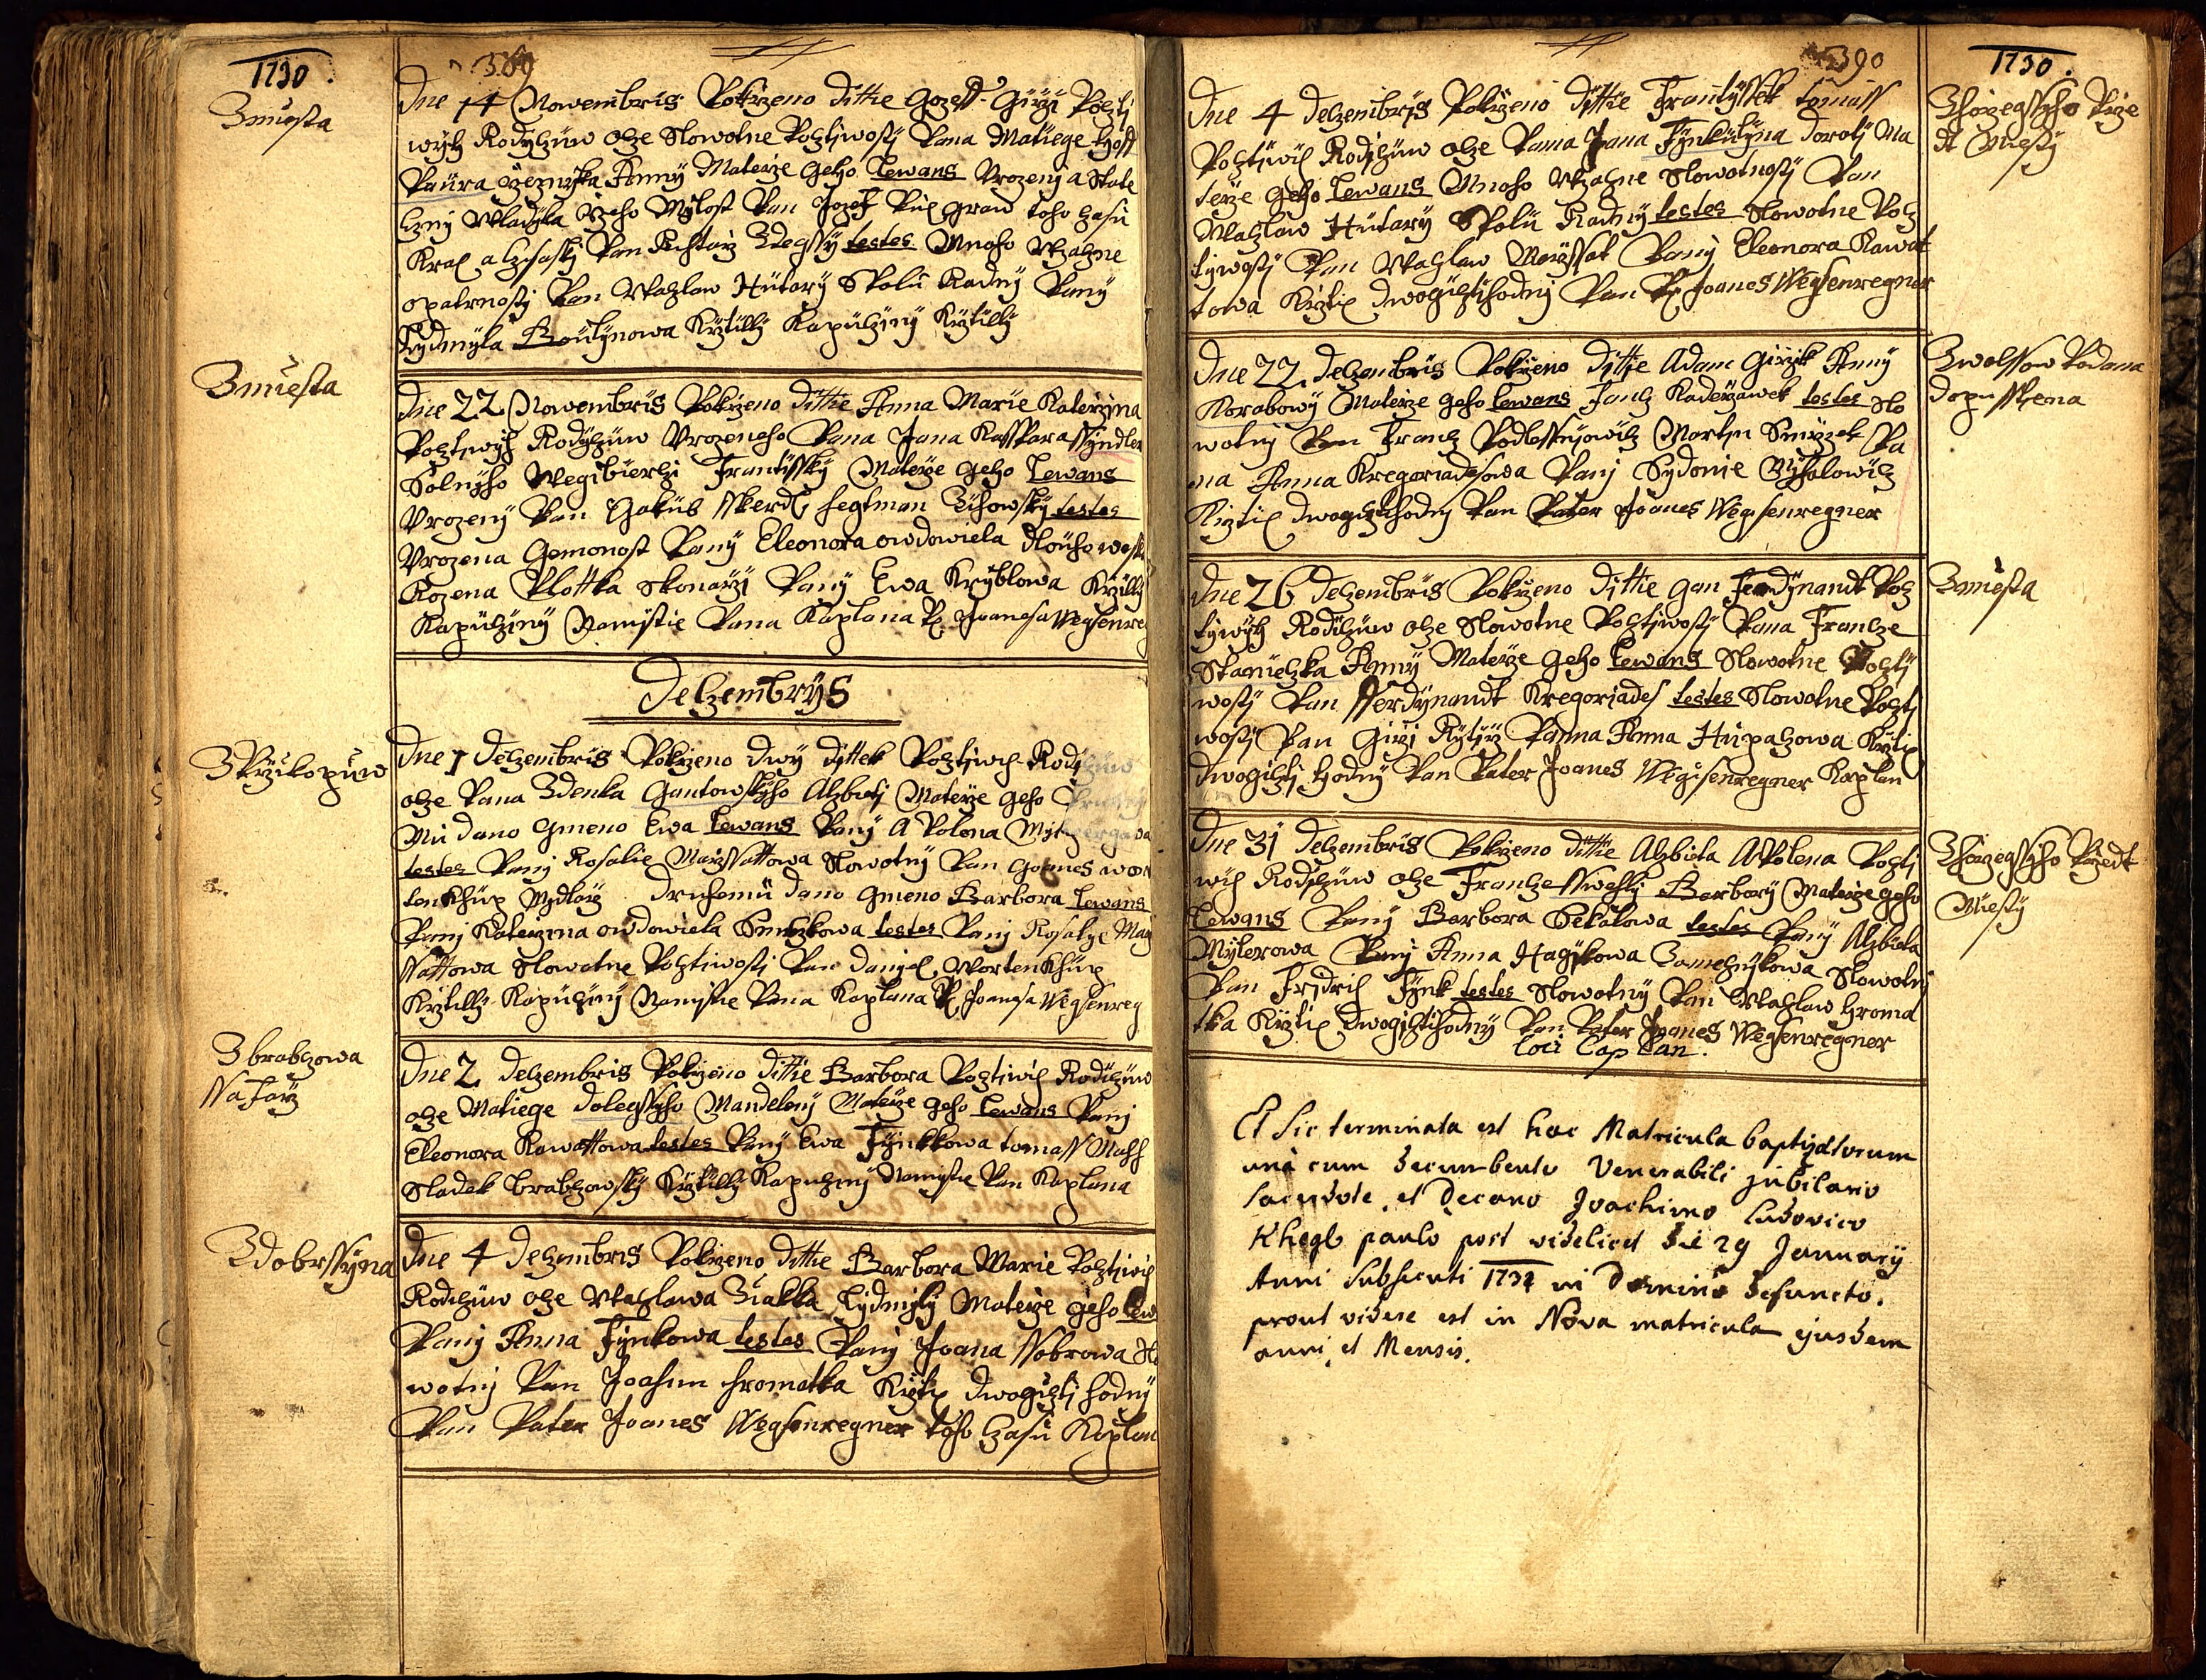 1730.
389
Zmiesta
Dne 14 Nowembris Pokrzeno dittie Gozeff Girzi Pocztj
wých Rodyczuw otze Slowotne Pocztiwosti Pana Matiege Hoff
Paura Rzeznyka Anny Materze geho Lewans Vrozeny a State
czny Wladyka Jeho Mylost Pan Jozef
Kral a Pan Richtarz Zdegssy testes Mnoho Wzaczne
opatrnosti Pan Waczlaw Hutary Spolu Radny Pany
Lydmyla Boutynowa Krztilly Kapuczyny Krztilly
Zmiesta
Dne 22 Nowembris Pokrzeno dittie Anna Marie Katerzyna
Pocztiwych Rodyczuw Vrozeneho Pana Jana Kasspara
Solnyho Frantissky Materze geho Lewans
Vrozeny Pan Gakub hegtman testes
Vrozena Pany Eleonora owdowiela
Rozena Pany Ewa Kryblowa Krztilly
Kapuczyny Namistie Pana Kaplana P Joanesa Wegsenreg
Deczembrys
Z Przikopuw
Dne 1 Deczembris Pokrzeno dwy dittek Pocztiwch Rodyczuw
otze Pana Zdenka Gantowskyho Alzbiety Materze geho
Mu dano Gmeno Ewa Lewans Pany Apolena
testes Pany Rosalie Marzssattowa Slowotny Pan Goanes wor
tenkhup druhemu dano gmeno Barbora Lewans
Pany Katerzyna owdowiela testes Pany Rosalye Marz
ssattowa Slowotne Pocztiwosti Pan Danyel Wortenkhup
Krztilly Kapuczyny Namistie Pana Kaplana P Joanesa Wegsenreg
Z brabczowa
Dne 2 Deczembris Pokrzeno dittie Barbora Pocztiwch Rodiczuw
otze Matiege dolegssyho Mandeleny Materze geho Lewans Pany
Eleonora Kawattowa testes Pany Ewa Fynkkowa tomass
Sladek brabczowsky Krztilly Kapuczyny Namistie Pan Kaplana
Z dobrssyna
Dne 4 Deczembris Pokrzeno dittie Barbora Marie Pocztiwch
Rodiczuw otze Waczlawa Ziakka Lydmyly Materze geho Lew
Pany Anna Fynkowa testes Pany Joana Slo
wotny Pan Joachim hromatka Krztil dwogicztihodny
Pan Pater Joanes Wegsenregner toho Czasu Kaplan
390
1730.
Zhorzegssyho Prze
dt Miesty
Dne 4 Deczembris Pokrzeno dittie Frantyssek tomass
Pocztiwch Rodyczuw otze Pana Jana Fynkulyna Doroty Ma
terze geho Lewans Mnoho Wzaczne Slowotnosti Pan
Waczlaw Hutary Spolu Radny testes Slowotne Pocz
tiwosti Pan Waczlaw Marzssat Pany Eleonora Kawat
towa Krztil dwogicztihodny Pan P Joanes Wegsenregner
Zwolssow Podana
dopusstena
Dne 22 Deczembris Pokrzeno dittie Adam Girzik Anny
Korabowy Materze geho Lewans Francz Kaderzawek testes Slo
wotny Pan Francz Martyn Pa
na Anna Kregoriadesowa Pany Sydonie
Krztil dwogicztihodny Pan Pater Joanes Wegsenregner
Zmiesta
Dne 26 Deczembris Pokrzeno dittie Gan Ferdynandt Pocz
tiwych Rodiczuw otze Slowotne Pocztiwosti Pana Francze
Staniczka Anny Materze geho Lewans Slowotne Pocztj
wosti Pan Fferdynandt Kregoriades testes Slowotne Pocztj
wosti Pan Girzi Rytirz Panna Anna Hupaczowa Krztil
dwogiczti hodny Pan Pater Joanes Wegsenregner Kaplan
Zhorzegssyho Przedt
Miesty
Dne 31 Deczembris Pokrzeno dittie Alzbieta Apolena Pocztj
wch Rodiczuw otze Francze Barbory Materze geho
Lewans Pany Barbora Sekalowa testes Pany Alzbieta
Mylerowa Pany Anna Hagkowa Zamecznykowa Slowotny
Pan Frydrich Fynk testes Slowotny Pan Waczlaw hroma
tka Krztil dwogicztihodny Pan Pater Joanes Wegsenregner
Loci Caplan.
Et sic terminata est haec Matricula baptizatorum
una cum decumbente Venerabili jubilario
sacerdote, et Decano Joachimo Ludovico
Khegl paulo post videlicet die 29 Januarij
Anni subsecuti 1731 in Domino defuncto.
prout videre est in Nova matricula ejusdem
anni et Mensis.